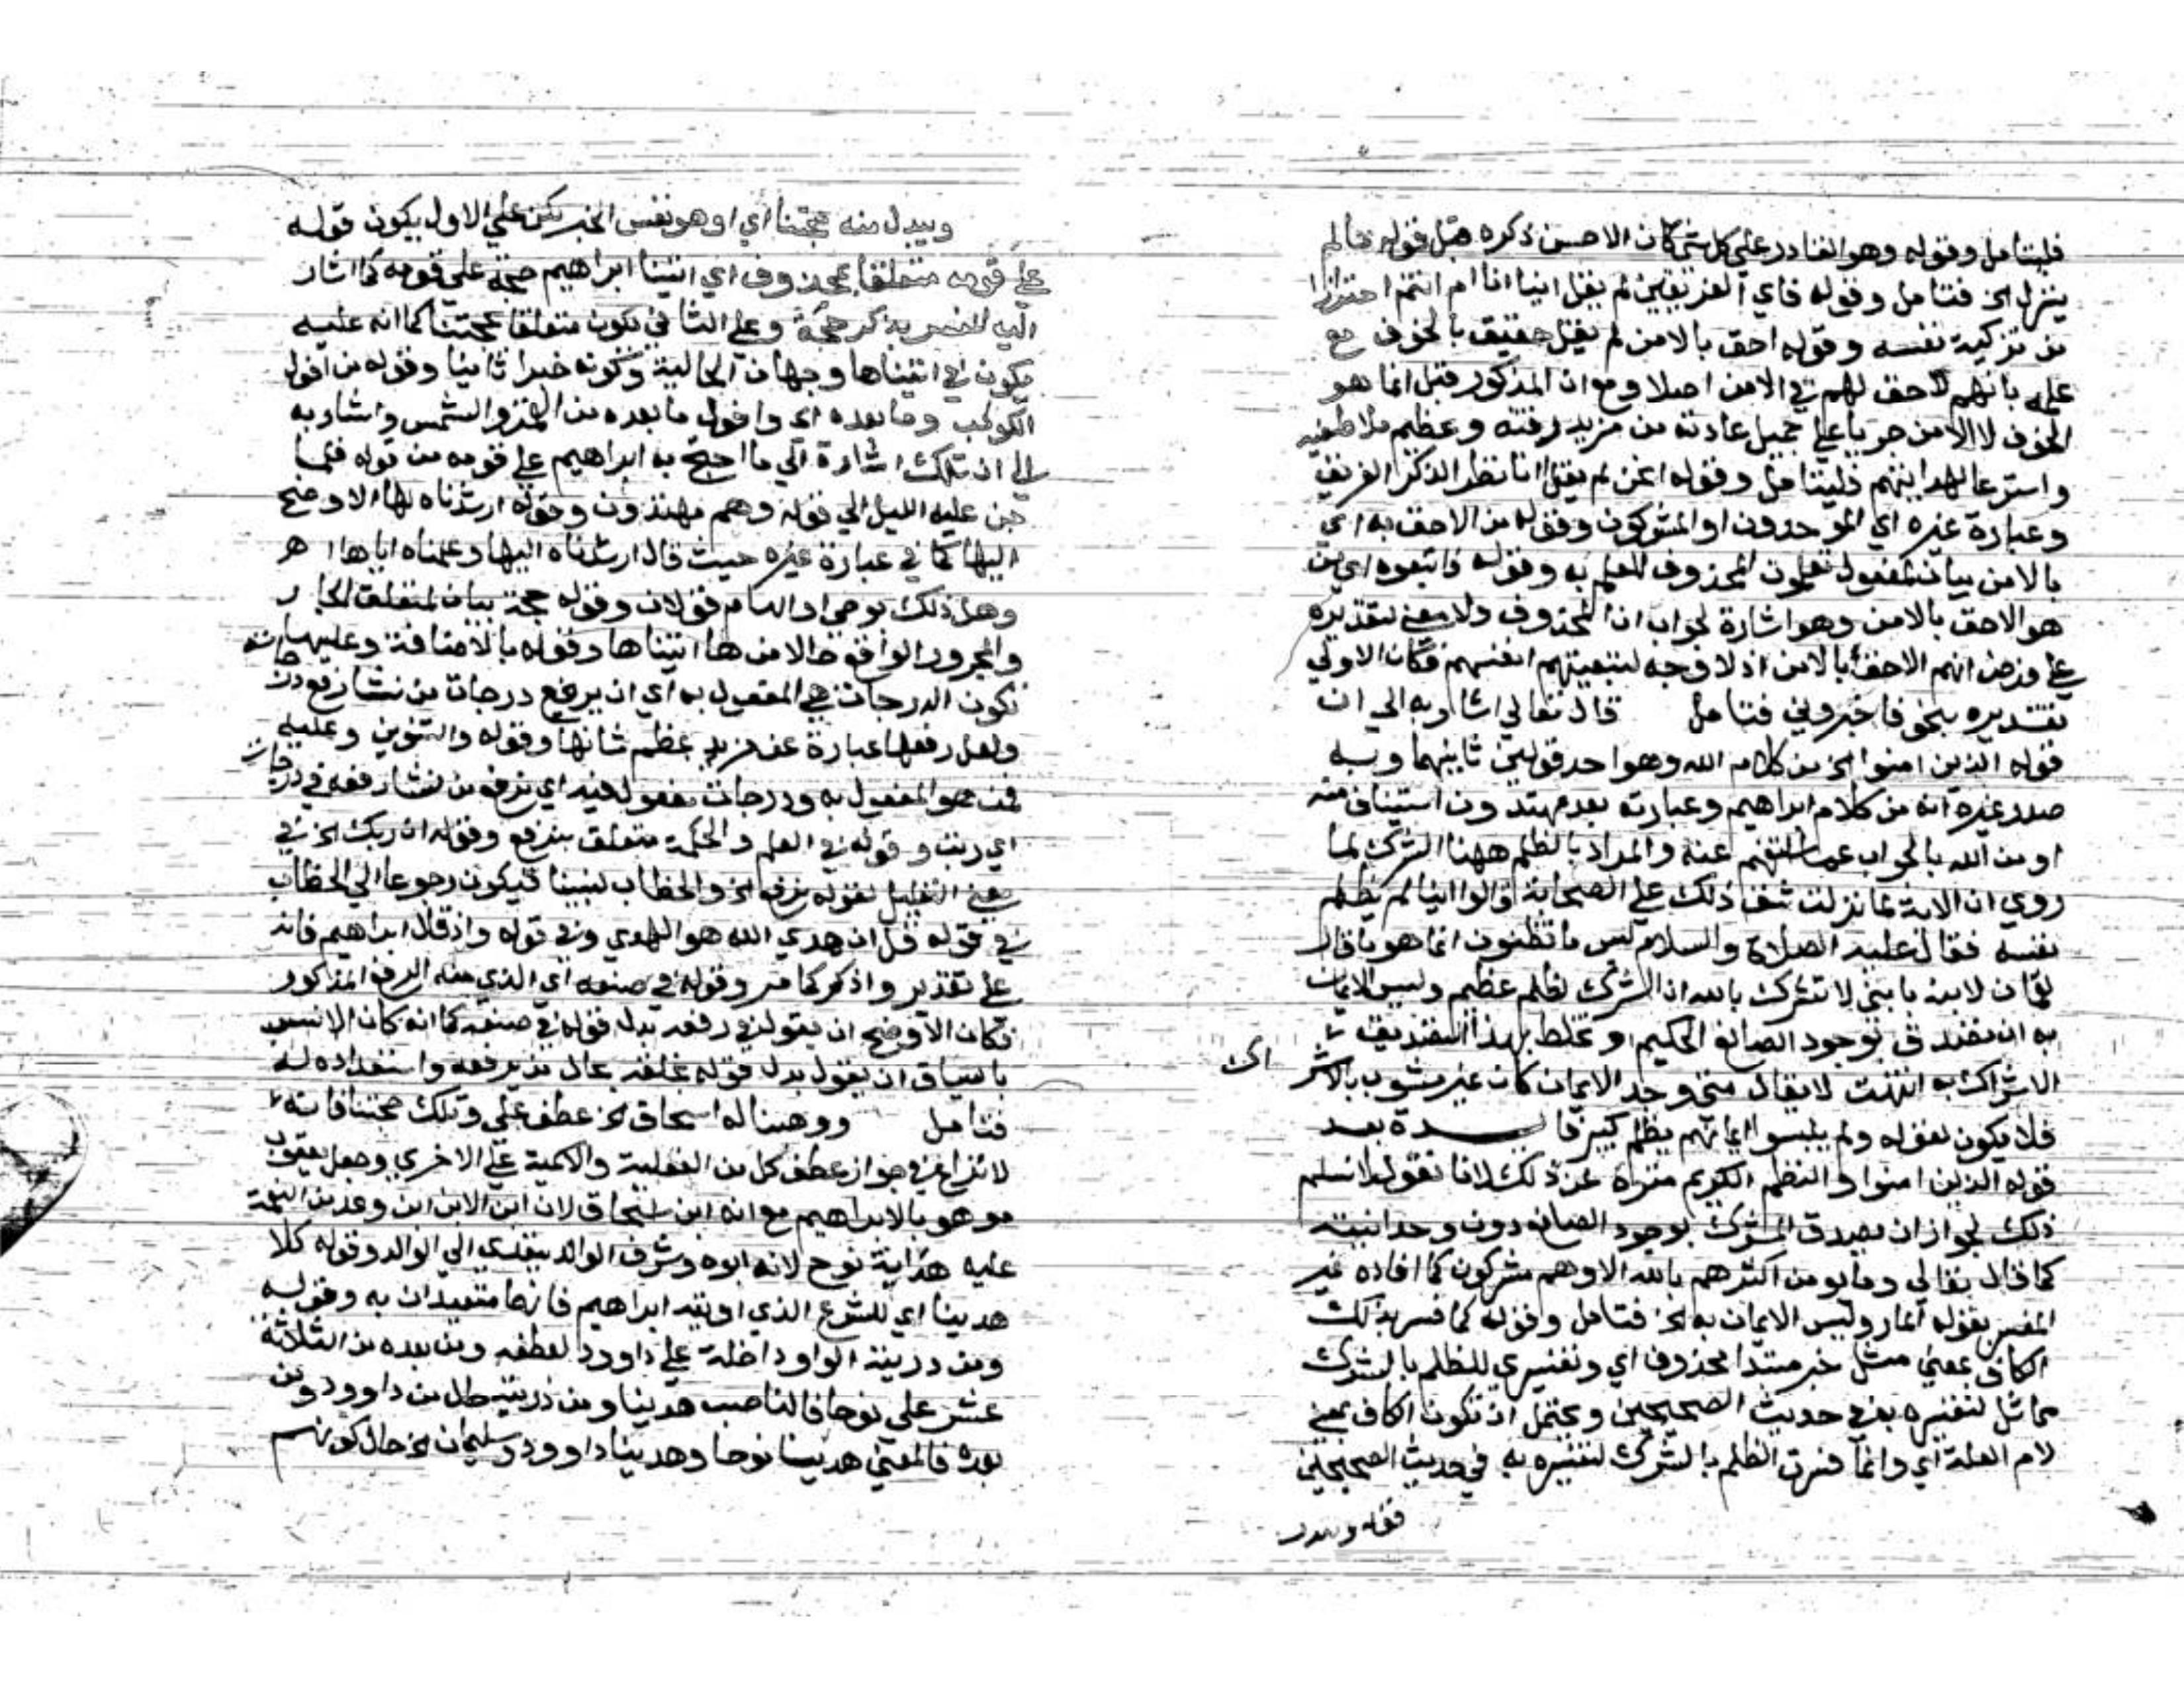 فليتامل وقوله وهو القادر علي كل شي كان الاحسن ذكره قبل قوله مالم
ينزل الخ فتامل وقوله فاي الفريقين لم يقل اينا انا ام انتم احترازا
من تزكية نفسه وقوله احق بالامن لم يقل حقيق بالخوف مع
علمه بانهم لا حق لهم في الامن اصلا ومع ان المذكور قبل انما هو
الخوف لا الامن جريا علي جميل عادته من مزيد رفقه وعظم ملاطفته
واسترعا لهدايتهم فليتامل وقوله اعن لم يقل انا نظر الذكر الفريق
وعبارة غيره اي الموحدون او المشركون وقوله من الاحق به اي
بالامن بيان لمفعول تعلمون المحذوف للعلم به وقوله فاتبعوه اي من
هو الاحق بالامن وهو اشارة لجواب ان المحذوف ولا معني لتقديره
علي فرض انهم الاحق بالامن اذ لا وجه لتبعيتهم انفسهم فكان الاولي
تقديره بنحو فاخبروني فتامل قال تعالي اشار به الي ان
قوله الذين امنوا الخ من كلام الله وهو احد قولين ثانيهما وبه
صدر غيره انه من كلام ابراهيم وعبارته بعد مهتدون استيناف منه
او من الله بالجواب عما استفهم عنه والمراد بالظلم ههنا الشرك لما
روي ان الاية لما نزلت شق ذلك علي الصحابة وقالوا اينا لم يظلم
نفسه فقال عليه الصلاة والسلام ليس ما تظنون انما هو ما قال
لقمان لابنه يا بني لا تشرك بالله ان الشرك لظلم عظيم وليس الايمان
به ان تصدق بوجود الصانع الحكيم وتخلط بهذا التصديق
الاشراك به انتهت لا يقال متي وجد الايمان كان غير مشوب بالاشر اك
فلا يكون لقوله ولم يلبسوا ايمانهم بظلم كبير فايدة بعد
قوله الذين امنوا والنظم الكريم منزه عن ذلك لانا نقول لا نسلم
ذلك لجواز ان يصدق المشرك بوجود الصانع دون وحدانيته
كما قال تعالي وما يومن اكثرهم بالله الا وهم مشركون كما افاده غير
المفسر بقوله المار وليس الايمان به الخ فتامل وقوله كما فسر بذلك
الكاف بمعني مثل خبر مبتدا محذوف اي وتفسيري للظلم بالشرك
مماثل لتفسيره به في حديث الصحيحين ويحتمل ان تكون الكاف بمعني
لام العلة اي وانما فسرت الظلم بالشرك لتفسيره به في حديث الصحيحين
ويبدل منه حجتنا اي او هو نفس الخبر لكن علي الاول يكون قوله
علي قومه متعلقا بمحذوف اي اتينا ابراهيم حجة علي قومه كما اشار
اليه المفسر بذكر حجة وعلي الثاني يكون متعلقا بحجتنا كما انه عليه
يكون في اتيناها وجهان الحالية وكونه خبرا ثانيا وقوله من افول
الكوكب وما بعده اي وافول ما بعده من القمر والشمس واشار به
الي ان تلك اشارة الي ما احتج به ابراهيم علي قومه من قوله فلما
جن عليه الليل الي قوله وهم مهتدون وقوله ارشدناه لها الاوضح
اليها كما في عبارة غيره حيث قال ارشدناه اليها وعلمناه اياها ا ه
وهل ذلك بوحي او الهام قولان وقوله حجة بيان لمتعلق الجار
والمجرور الواقع حالا من ها اتيناها وقوله بالاضافة وعليها
تكون الدرجات هي المفعول به اي ان يرفع درجات من نشا رفع درجاته
ولعل رفعها عبارة عن مزيد عظم شانها وقوله والتنوين وعليه
فمن هو المفعول به ودرجات مفعول فيه اي نرفع من نشا رفعه في درجات
اي رتب وقوله في العلم والحكمة متعلق بنرفع وقوله ان ربك الخ في
معني التعليل لقوله نرفع الخ والخطاب لنبينا فيكون رجوعا الي الخطاب
في قوله قل ان هدي الله هو الهدي وفي قوله واذ قال ابراهيم فانه
علي تقدير واذكر كما مر وقوله في صنعه اي الذي منه الرفع المذكور
فكان الاوضح ان يقول في رفعه بدل قوله في صنعه كما انه كان الانسب
بالسياق ان يقول بدل قوله بخلقه بحال من يرفعه واستعداده له
فتامل ووهبنا له اسحاق الخ عطف علي وتلك حجتنا فانه
لا نزاع في جواز عطف كل من الفعلية والاسمية علي الاخري وجعل يعقوب
موهوبا لابراهيم مع انه ابن اسحاق لان ابن الابن ابن وعد من النعمة
عليه هداية نوح لانه ابوه وشرف الوالد يتعدي الي الوالد وقوله كلا
هدينا اي للشرع الذي اوتيه ابراهيم فانهما متعبدان به وقوله
ومن ذريته الواو داخلة علي داوود لعطفه ومن بعده من الثلاثة
عشر علي نوحا فالناصب هدينا ومن ذريته حال من داوود ومن
بعده فالمعني هدينا نوحا وهدينا داوود وسليمان الخ حال كونهم